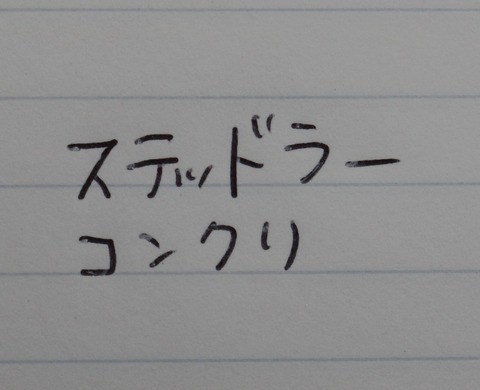 ステッドラー
コンクリ